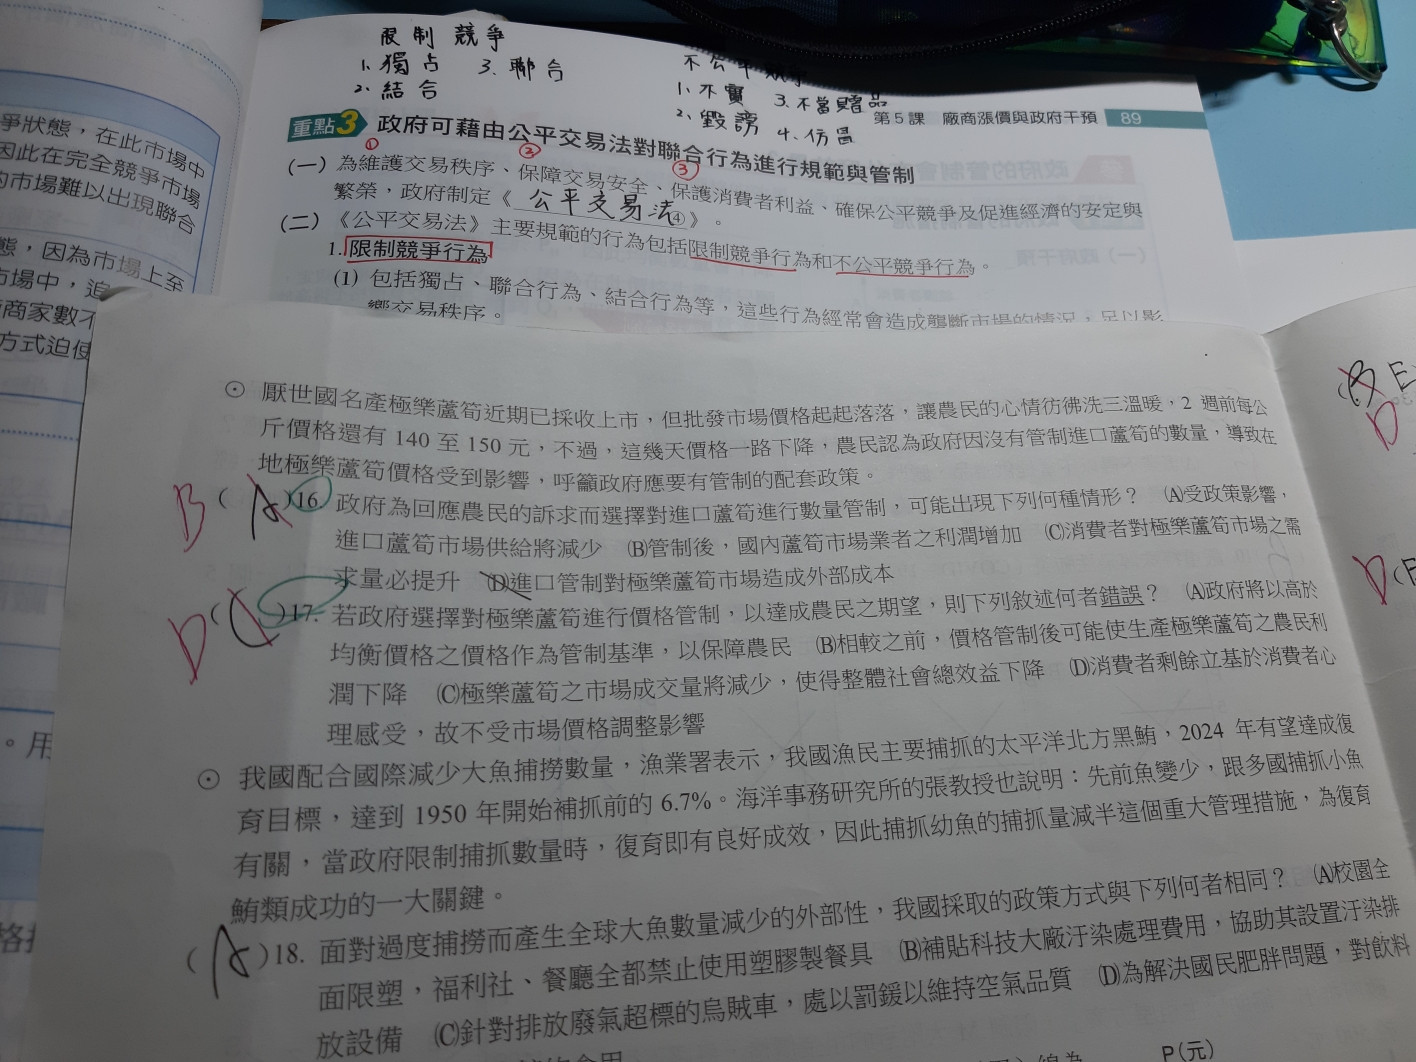 限制競爭
1. 獨占 3. 聯合
2. 結合
不公平競爭
1. 不實 3. 不當贈品
2. 毀謗 4. 仿冒
第5課 廠商漲價與政府干預 89
重點3 政府可藉由公平交易法對聯合行為進行規範與管制
(一) 為維護交易秩序、保障交易安全、保護消費者利益、確保公平競爭及促進經濟的安定與
① ② ③
繁榮,政府制定《 公平交易法④ 》。
(二)《公平交易法》主要規範的行為包括限制競爭行為和不公平競爭行為。
1. 限制競爭行為
(1) 包括獨占、聯合行為、結合行為等,這些行為經常會造成壟斷市場的情況,足以影
響交易秩序。
爭狀態,在此市場中
因此在完全競爭市場
的市場難以出現聯合
態,因為市場上至
市場中,追
商家數不
方式迫使
。用
⊙ 厭世國名產極樂蘆筍近期已採收上市,但批發市場價格起起落落,讓農民的心情彷彿洗三溫暖,2 週前每公
斤價格還有 140 至 150 元,不過,這幾天價格一路下降,農民認為政府因沒有管制進口蘆筍的數量,導致在
地極樂蘆筍價格受到影響,呼籲政府應要有管制的配套政策。
B ( A )16. 政府為回應農民的訴求而選擇對進口蘆筍進行數量管制,可能出現下列何種情形? (A)受政策影響,
進口蘆筍市場供給將減少 (B)管制後,國內蘆筍市場業者之利潤增加 (C)消費者對極樂蘆筍市場之需
求量必提升 (D)進口管制對極樂蘆筍市場造成外部成本
D ( C )17. 若政府選擇對極樂蘆筍進行價格管制,以達成農民之期望,則下列敘述何者錯誤? (A)政府將以高於
均衡價格之價格作為管制基準,以保障農民 (B)相較之前,價格管制後可能使生產極樂蘆筍之農民利
潤下降 (C)極樂蘆筍之市場成交量將減少,使得整體社會總效益下降 (D)消費者剩餘立基於消費者心
理感受,故不受市場價格調整影響
⊙ 我國配合國際減少大魚捕撈數量,漁業署表示,我國漁民主要捕抓的太平洋北方黑鮪,2024 年有望達成復
育目標,達到 1950 年開始補抓前的 6.7%。海洋事務研究所的張教授也說明:先前魚變少,跟多國捕抓小魚
有關,當政府限制捕抓數量時,復育即有良好成效,因此捕抓幼魚的捕抓量減半這個重大管理措施,為復育
鮪類成功的一大關鍵。
( A )18. 面對過度捕撈而產生全球大魚數量減少的外部性,我國採取的政策方式與下列何者相同? (A)校園全
面限塑,福利社、餐廳全都禁止使用塑膠製餐具 (B)補貼科技大廠汙染處理費用,協助其設置汙染排
放設備 (C)針對排放廢氣超標的烏賊車,處以罰鍰以維持空氣品質 (D)為解決國民肥胖問題,對飲料
P(元)